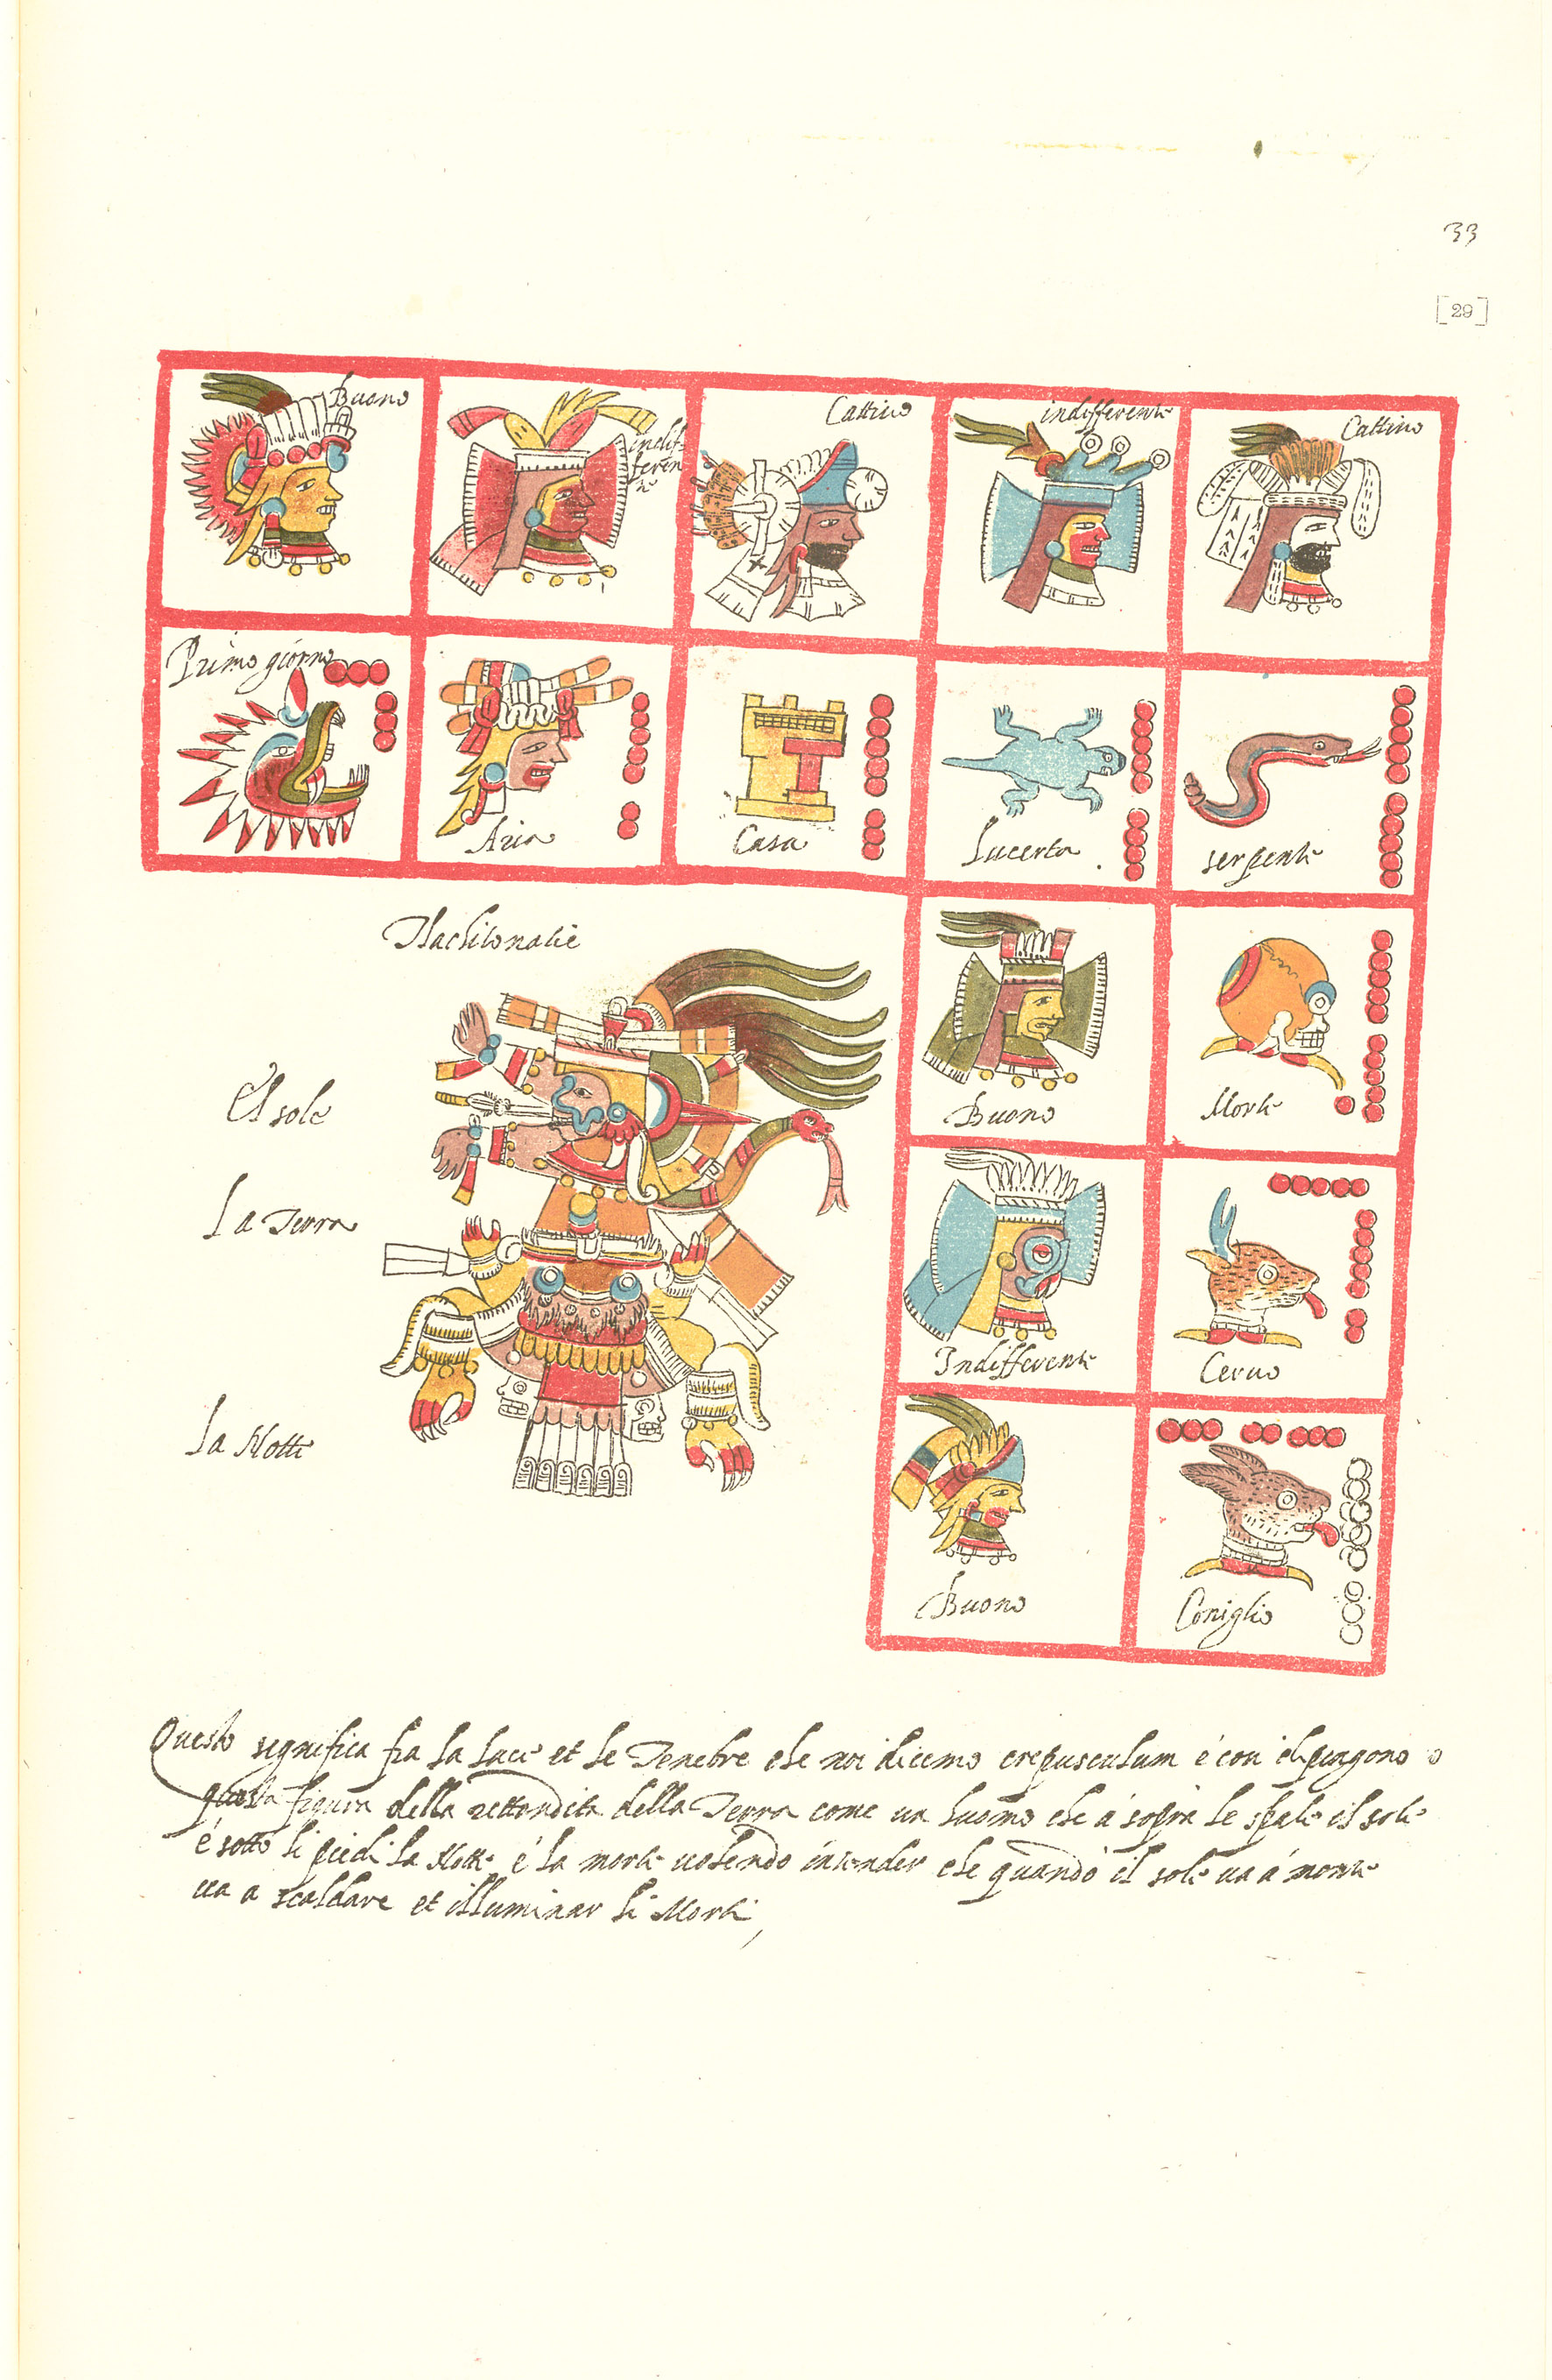 33
[29]
Buono
indif-
feren
te
Cattiuo
indifferente
Cattiuo
Primo giorno
Aria
Casa
Lucerta
serpente
Tlachitonatie
El sole
La Terra
La Notte
Buono
Morte
Indifferente
Ceruo
Buono
Coniglio
Questo significa fra la luce et le Tenebre che noi dicemo crepusculum é cosi dipingono
questa figura della rettondita della Terra come un huomo che á sopra le spale il sole
é sotto li piedi la Notte é la morte uolendo intender che quando il sole ua á morire
ua a scaldare et illuminar li Morti,